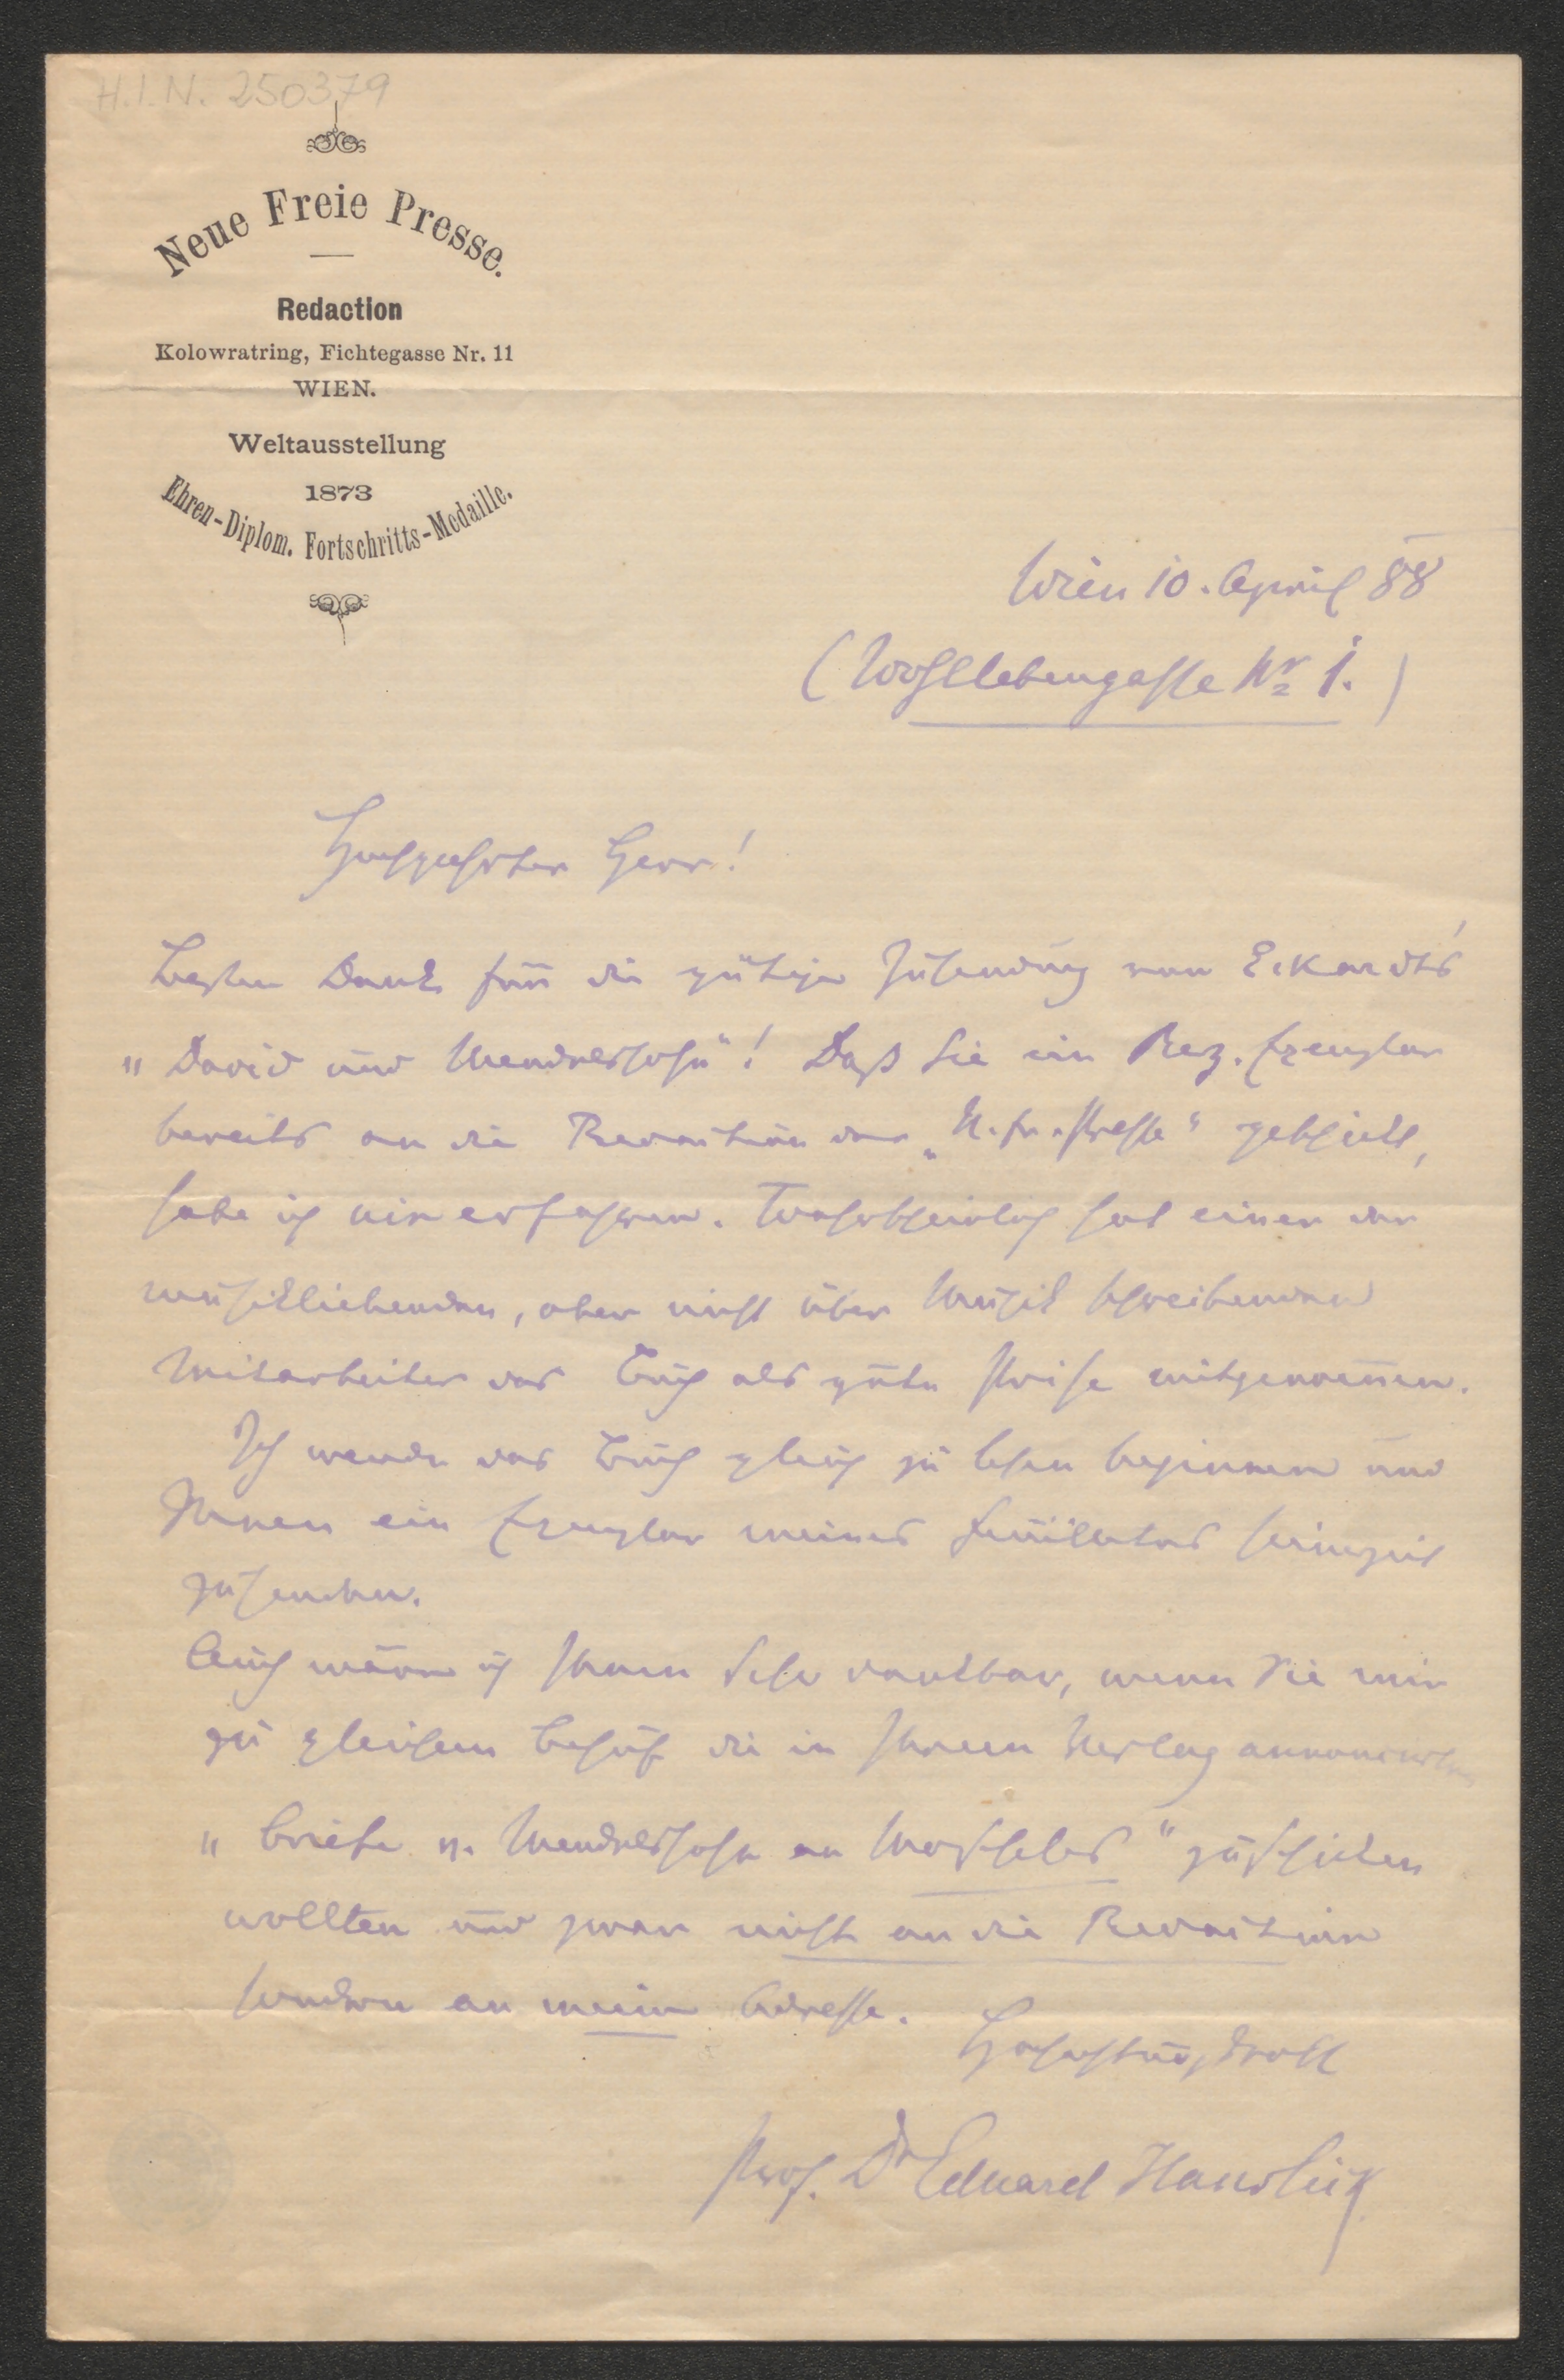 H.I.N. 250379
Neue Freie Presse.
Redaction
Kolowratring, Fichtegasse Nr. 11
WIEN.
Weltausstellung
1873
Ehren-Diplom. Fortschritts-Medaille.
Wien 10. April 88
(Wohllebengasse Nr 1.)
Hochgeehrter Herr!
Besten Dank für die gütige Zusendung von Eckardt's
„David und Mendelssohn"! Daß Sie ein Rez. Exemplar
bereits an die Redaction der „N. fr. Presse" geschickt,
habe ich nie erfahren. Wahrscheinlich hat einer der
musikliebenden, aber nicht über Musik schreibenden
Mitarbeiter das Buch als gute Prise mitgenom̅en.
Ich werde das Buch gleich zu lesen beginnen und
Ihnen ein Exemplar meines Feuilletons seinerzeit
zusenden.
Auch wäre ich Ihnen sehr dankbar, wenn Sie mir
zu gleichem Behuf die in Ihrem Verlag annoncirten
„Briefe v. Mendelssohn an Moscheles" zuschicken
wollten und zwar nicht an die Redaction
sondern an meine Adresse.
Hochachtungsvoll
Prof. Dr Eduard Hanslick